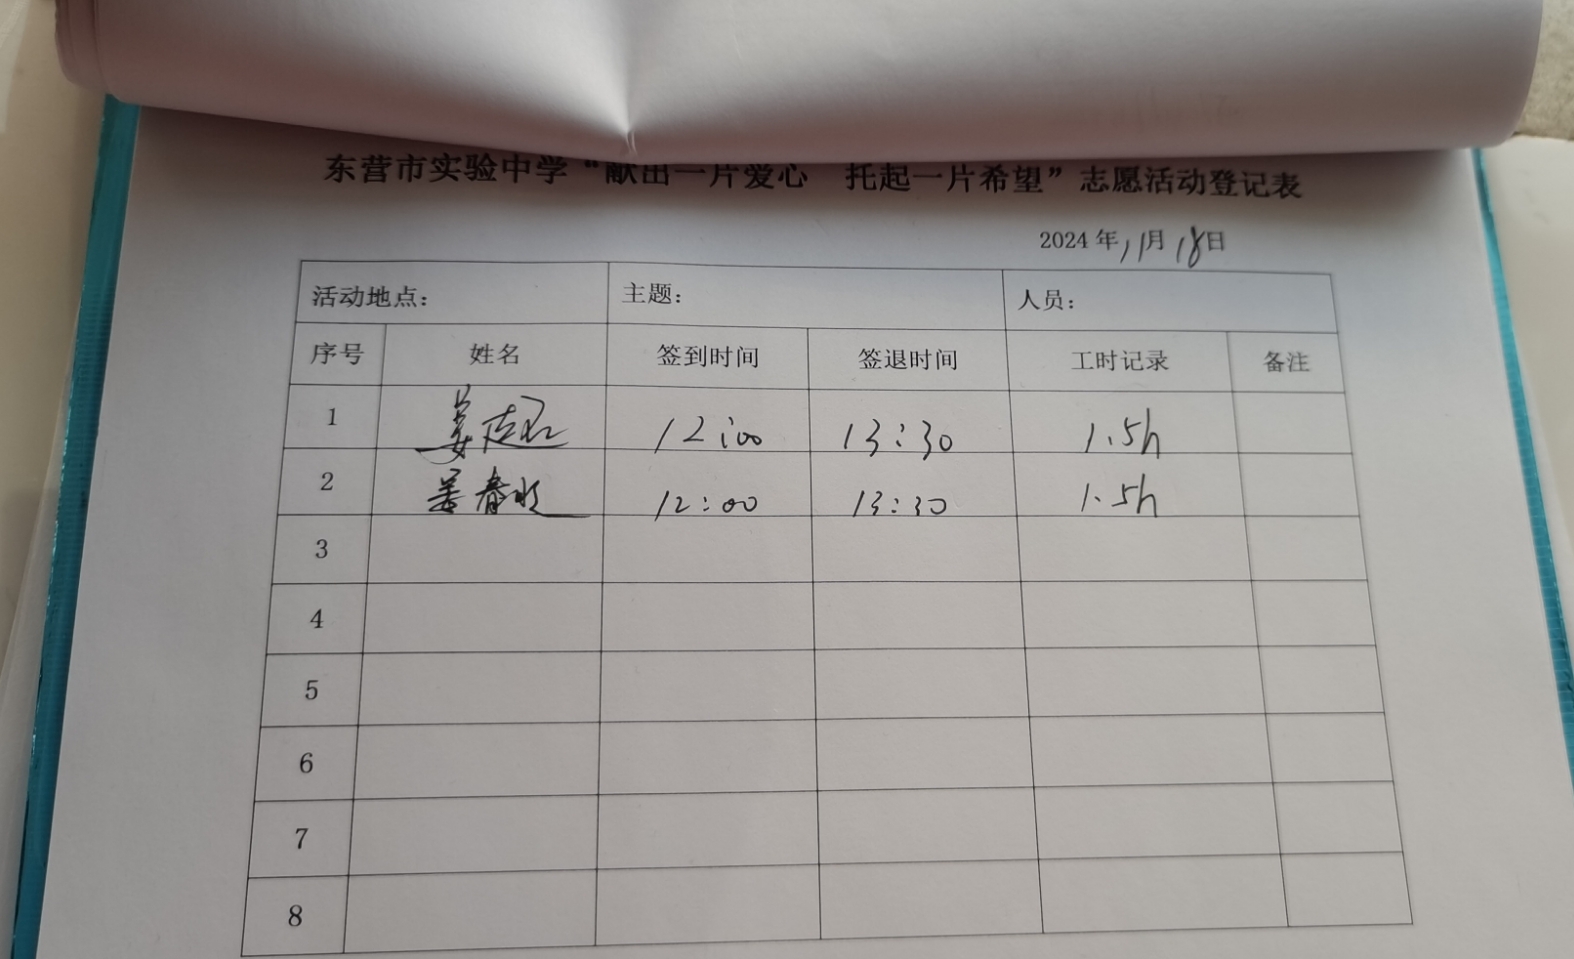 东营市实验中学“献出一片爱心 托起一片希望”志愿活动登记表
2024年11月18日
活动地点： 主题： 人员：
序号 姓名 签到时间 签退时间 工时记录 备注
1 姜 12:00 13:30 1.5h
2 姜春 12:00 13:30 1.5h
3
4
5
6
7
8